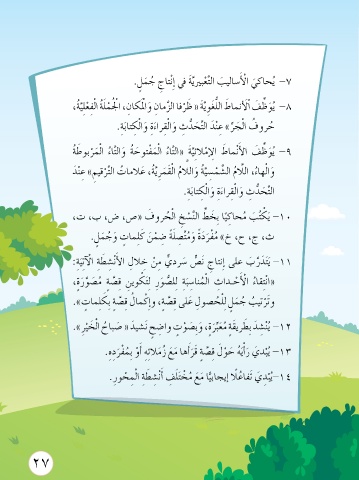 ٧- يُحاكيَ الْأَساليبَ التَّعْبيريَّةَ في إِنْتاجِ جُمَلٍ.
٨- يُوَظِّفَ ٱلْأَنماطَ اللُّغَويَّةَ « ظَرْفا الزَّمانِ وَالْمَكانِ، الْجُمْلَةُ الْفِعْليَّةُ،
حُروفُ الْجَرِّ» عِنْدَ التَّحَدُّثِ وَالْقِراءَةِ وَالْكِتابَةِ.
٩- يُوَظِّفَ الْأَنماطَ الْإِمْلائيَّةَ «التّاءُ الْمَفْتوحَةُ وَالتّاءُ الْمَرْبوطَةُ
وَالْهاءُ، اللّامُ الشَّمْسيَّةُ وَاللّامُ الْقَمَريَّةُ، عَلاماتُ التَّرْقيمِ» عِنْدَ
التَّحَدُّثِ وَالْقِراءَةِ وَالْكِتابَةِ.
١٠- يَكْتُبَ مُحاكيًا بِخَطِّ النَّسْخِ الْحُروفَ «ص، ض، ب، ت،
ث، ج، ح، خ» مُفْرَدَةً وَمُتَّصِلَةً ضِمْنَ كَلِماتٍ وَجُمَلٍ.
١١- يَتَدَرَّبَ عَلى إِنتاجِ نَصٍّ سَرْديٍّ مِنْ خِلالِ الْأَنْشِطَةِ الْآتيَةِ:
«انْتِقاءُ الْأَحْداثِ الْمُناسِبَةِ لِلصُّوَرِ لِتَكْوينِ قِصَّةٍ مُصَوَّرَةٍ،
وَتَرْتيبُ جُمَلٍ لِلْحُصولِ عَلى قِصَّةٍ، وَإِكْمالُ قِصَّةٍ بِكَلِماتٍ».
١٢- يُنْشِدَ بِطَريقَةٍ مُعَبِّرَةٍ، وَبِصَوْتٍ واضِحٍ نَشيدَ « صَباحُ الْخَيْرِ».
١٣- يُبْديَ رَأْيَهُ حَوْلَ قِصَّةٍ قَرَأَها مَعَ زُمَلائِهِ أَوْ بِمُفْرَدِهِ.
١٤- يُبْديَ تَفاعُلًا إيجابيًّا مَعَ مُخْتَلِفِ أَنْشِطَةِ الْمِحْوَرِ.
٢٧